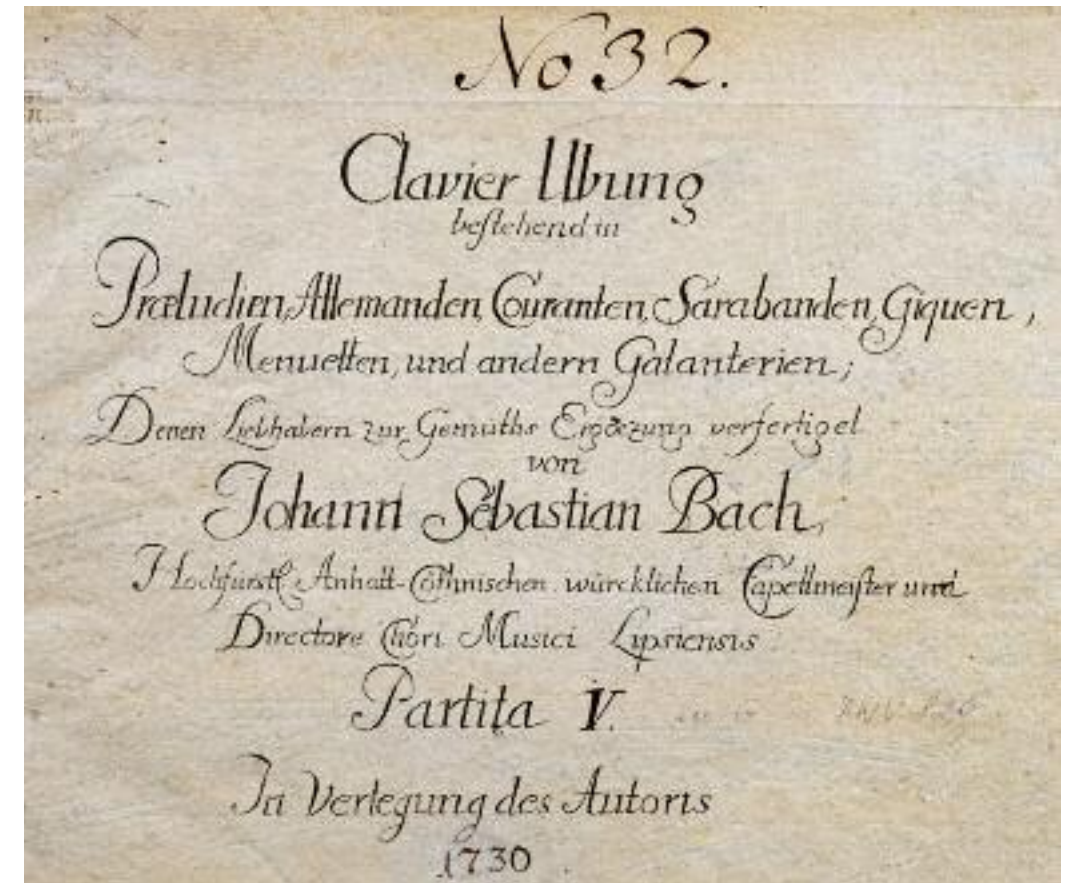 No 32.
Clavier Ubung
bestehend in
Præludien, Allemanden, Couranten, Sarabanden, Giquen,
Menuetten, und andern Galanterien;
Denen Liebhabern zur Gemüths Ergoezung verfertiget
von
Johann Sebastian Bach,
Hochfürstl. Anhalt-Cöthnischen würcklichen Capellmeister und
Directore Chori Musici Lipsiensis
Partita V.
In Verlegung des Autoris
1730